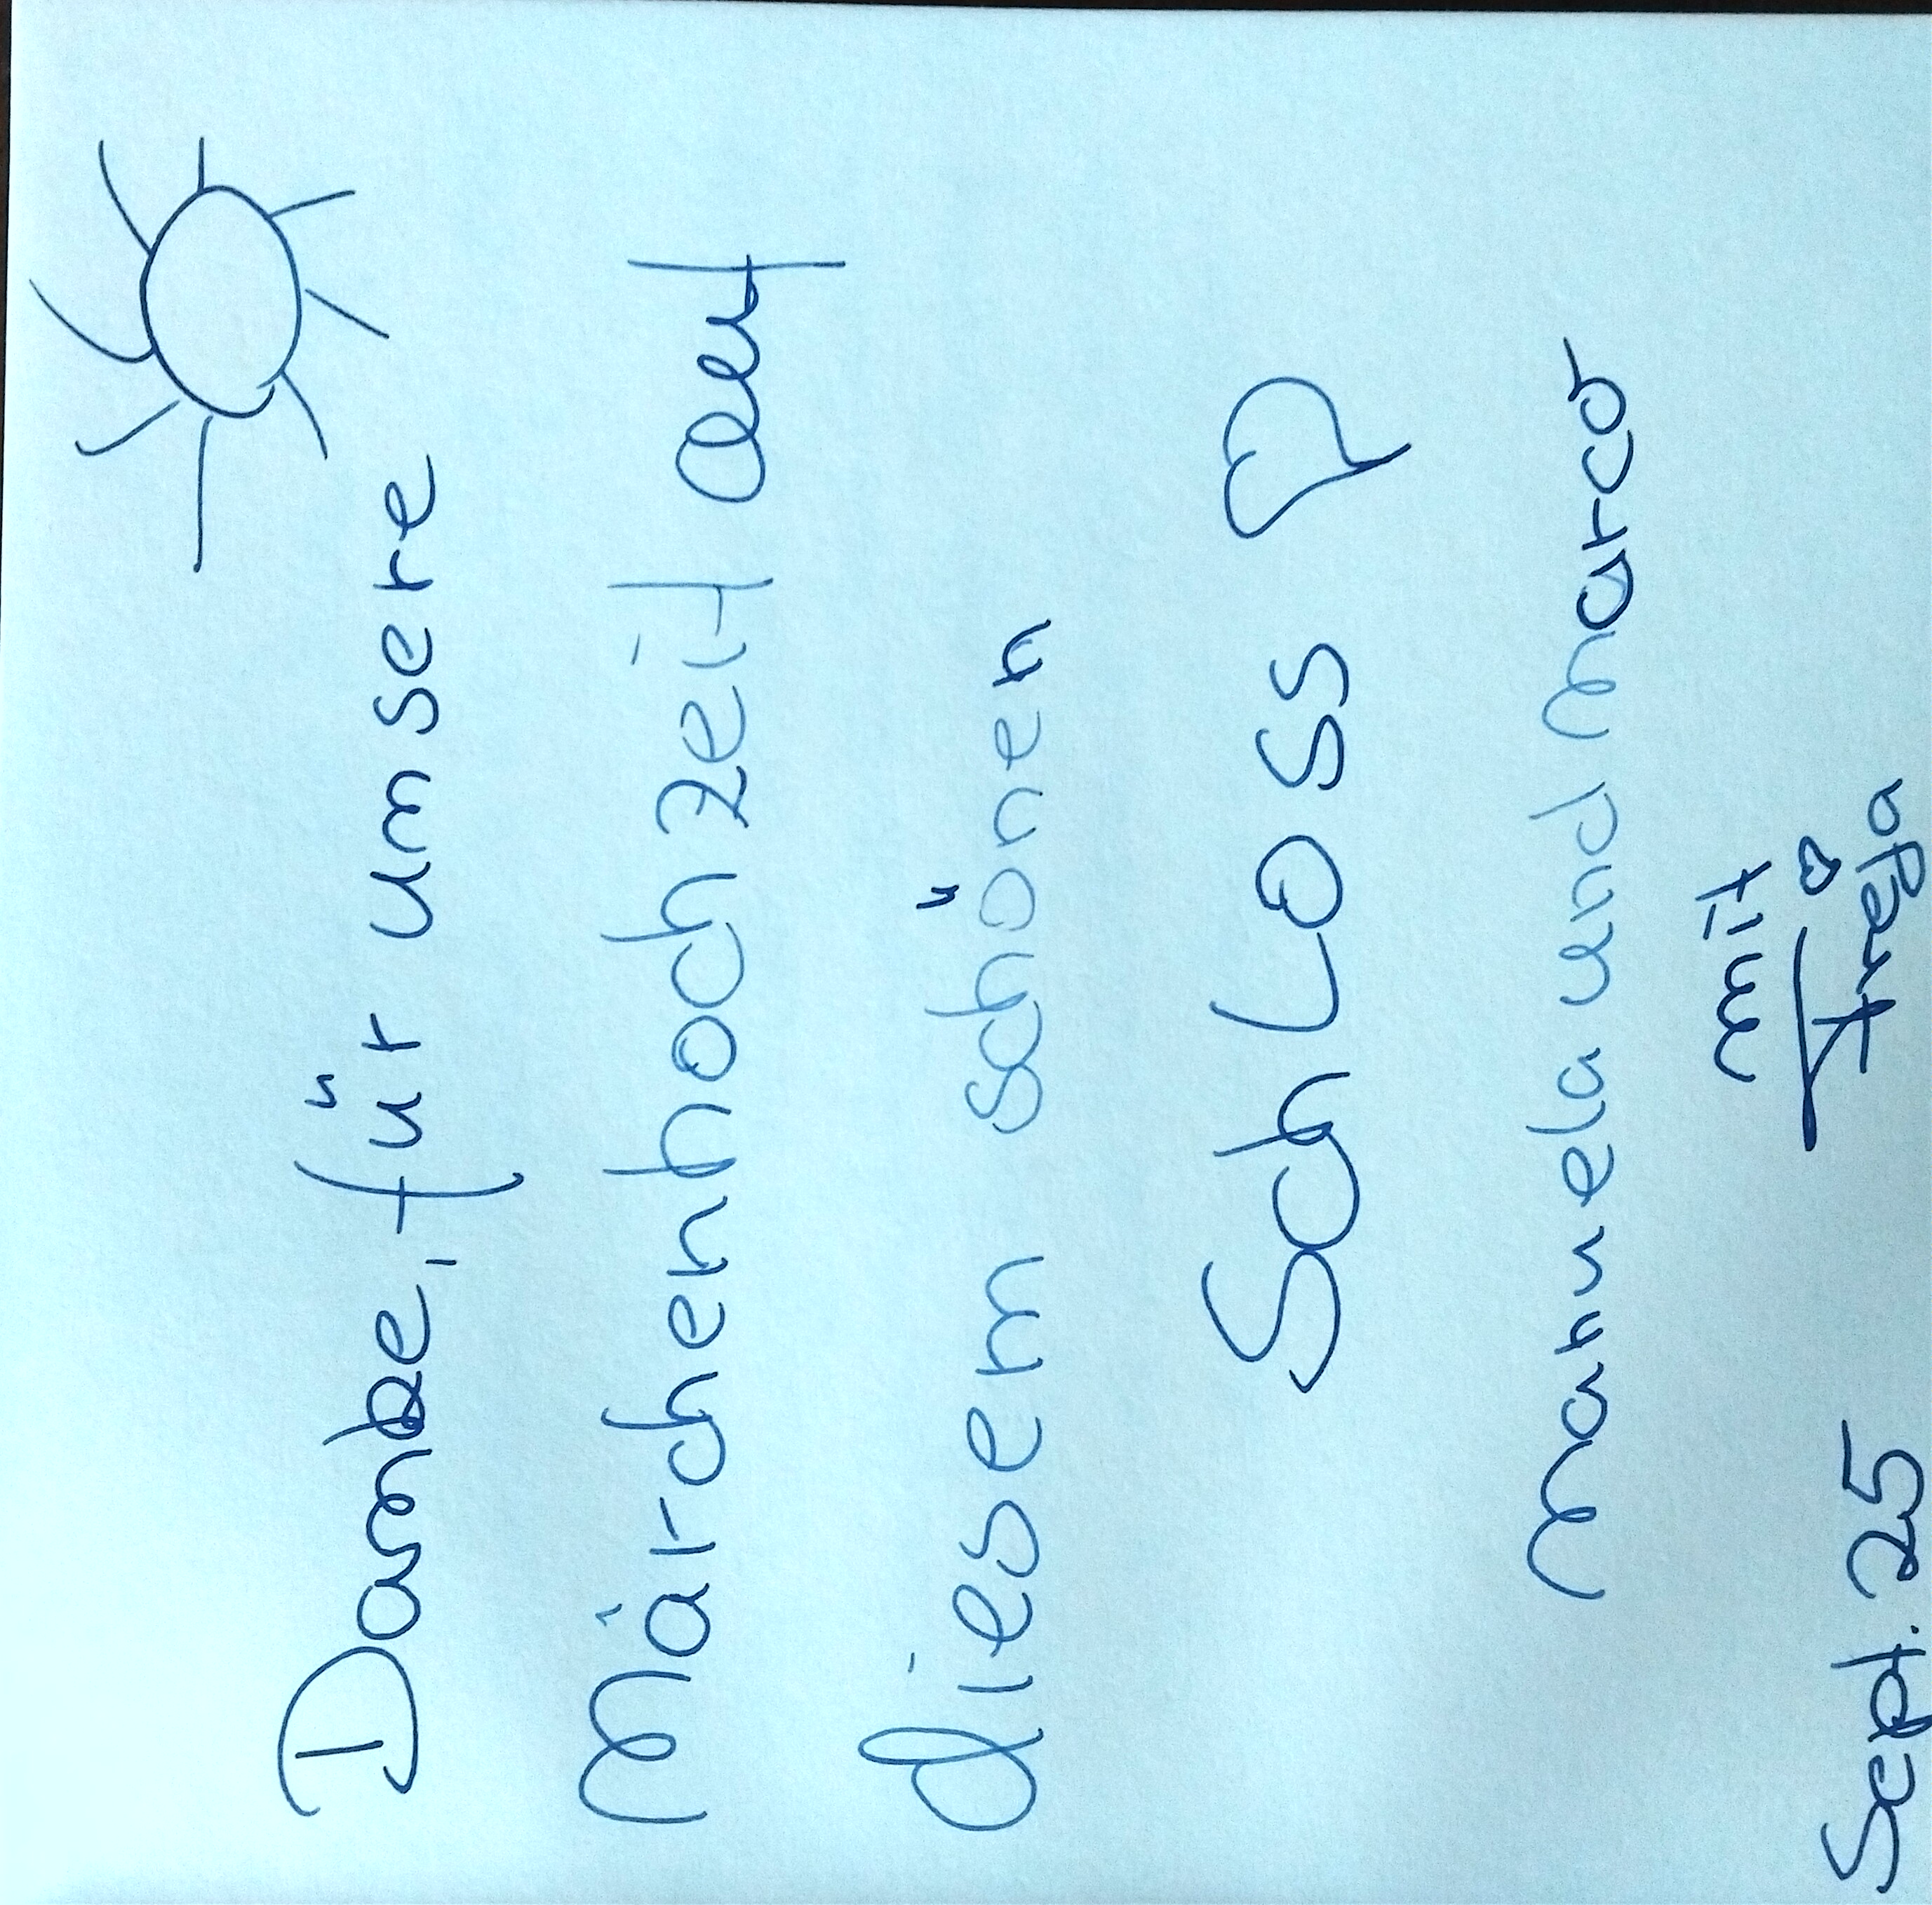 Danke, für unsere
Märchenhochzeit auf
diesem schönen
Schloss
Manuela und Marco
mit
Freja
Sept. 25